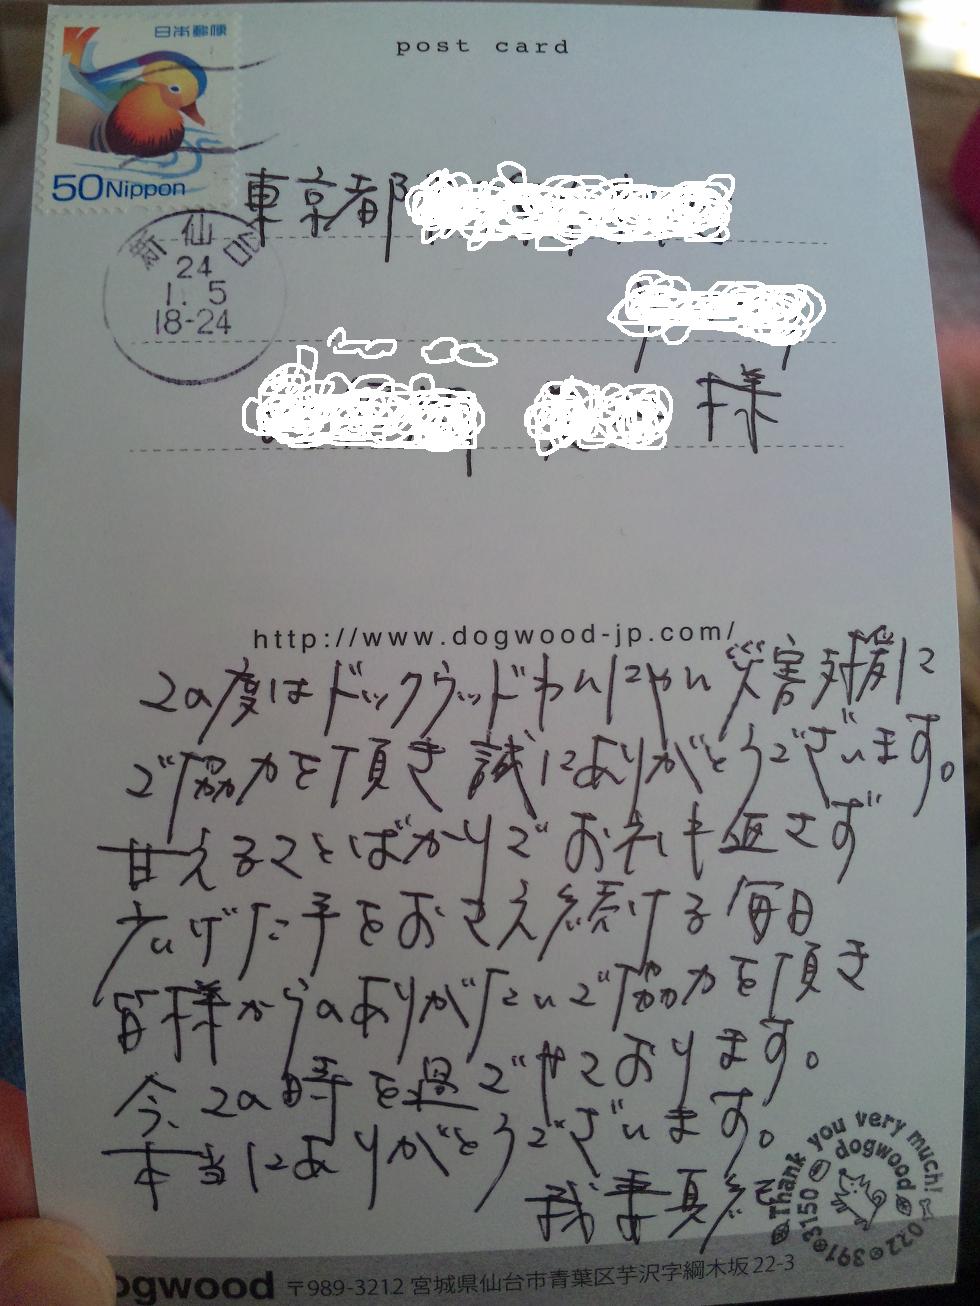 日本郵便
post card
50 Nippon
東京都
新仙台
24
1. 5
18-24
様
http://www.dogwood-jp.com/
この度はドックウッドわんにゃん災害支援に
ご協力を頂き誠にありがとうございます。
甘えることばかりでお礼も返さず
広げた手をおさえ続ける毎日
皆様からのありがたいご協力を頂き
今、この時を過ごせております。
本当にありがとうございます。
我妻真
Thank you very much!
dogwood
022 391 3150
ogwood 〒989-3212 宮城県仙台市青葉区芋沢字綱木坂 22-3